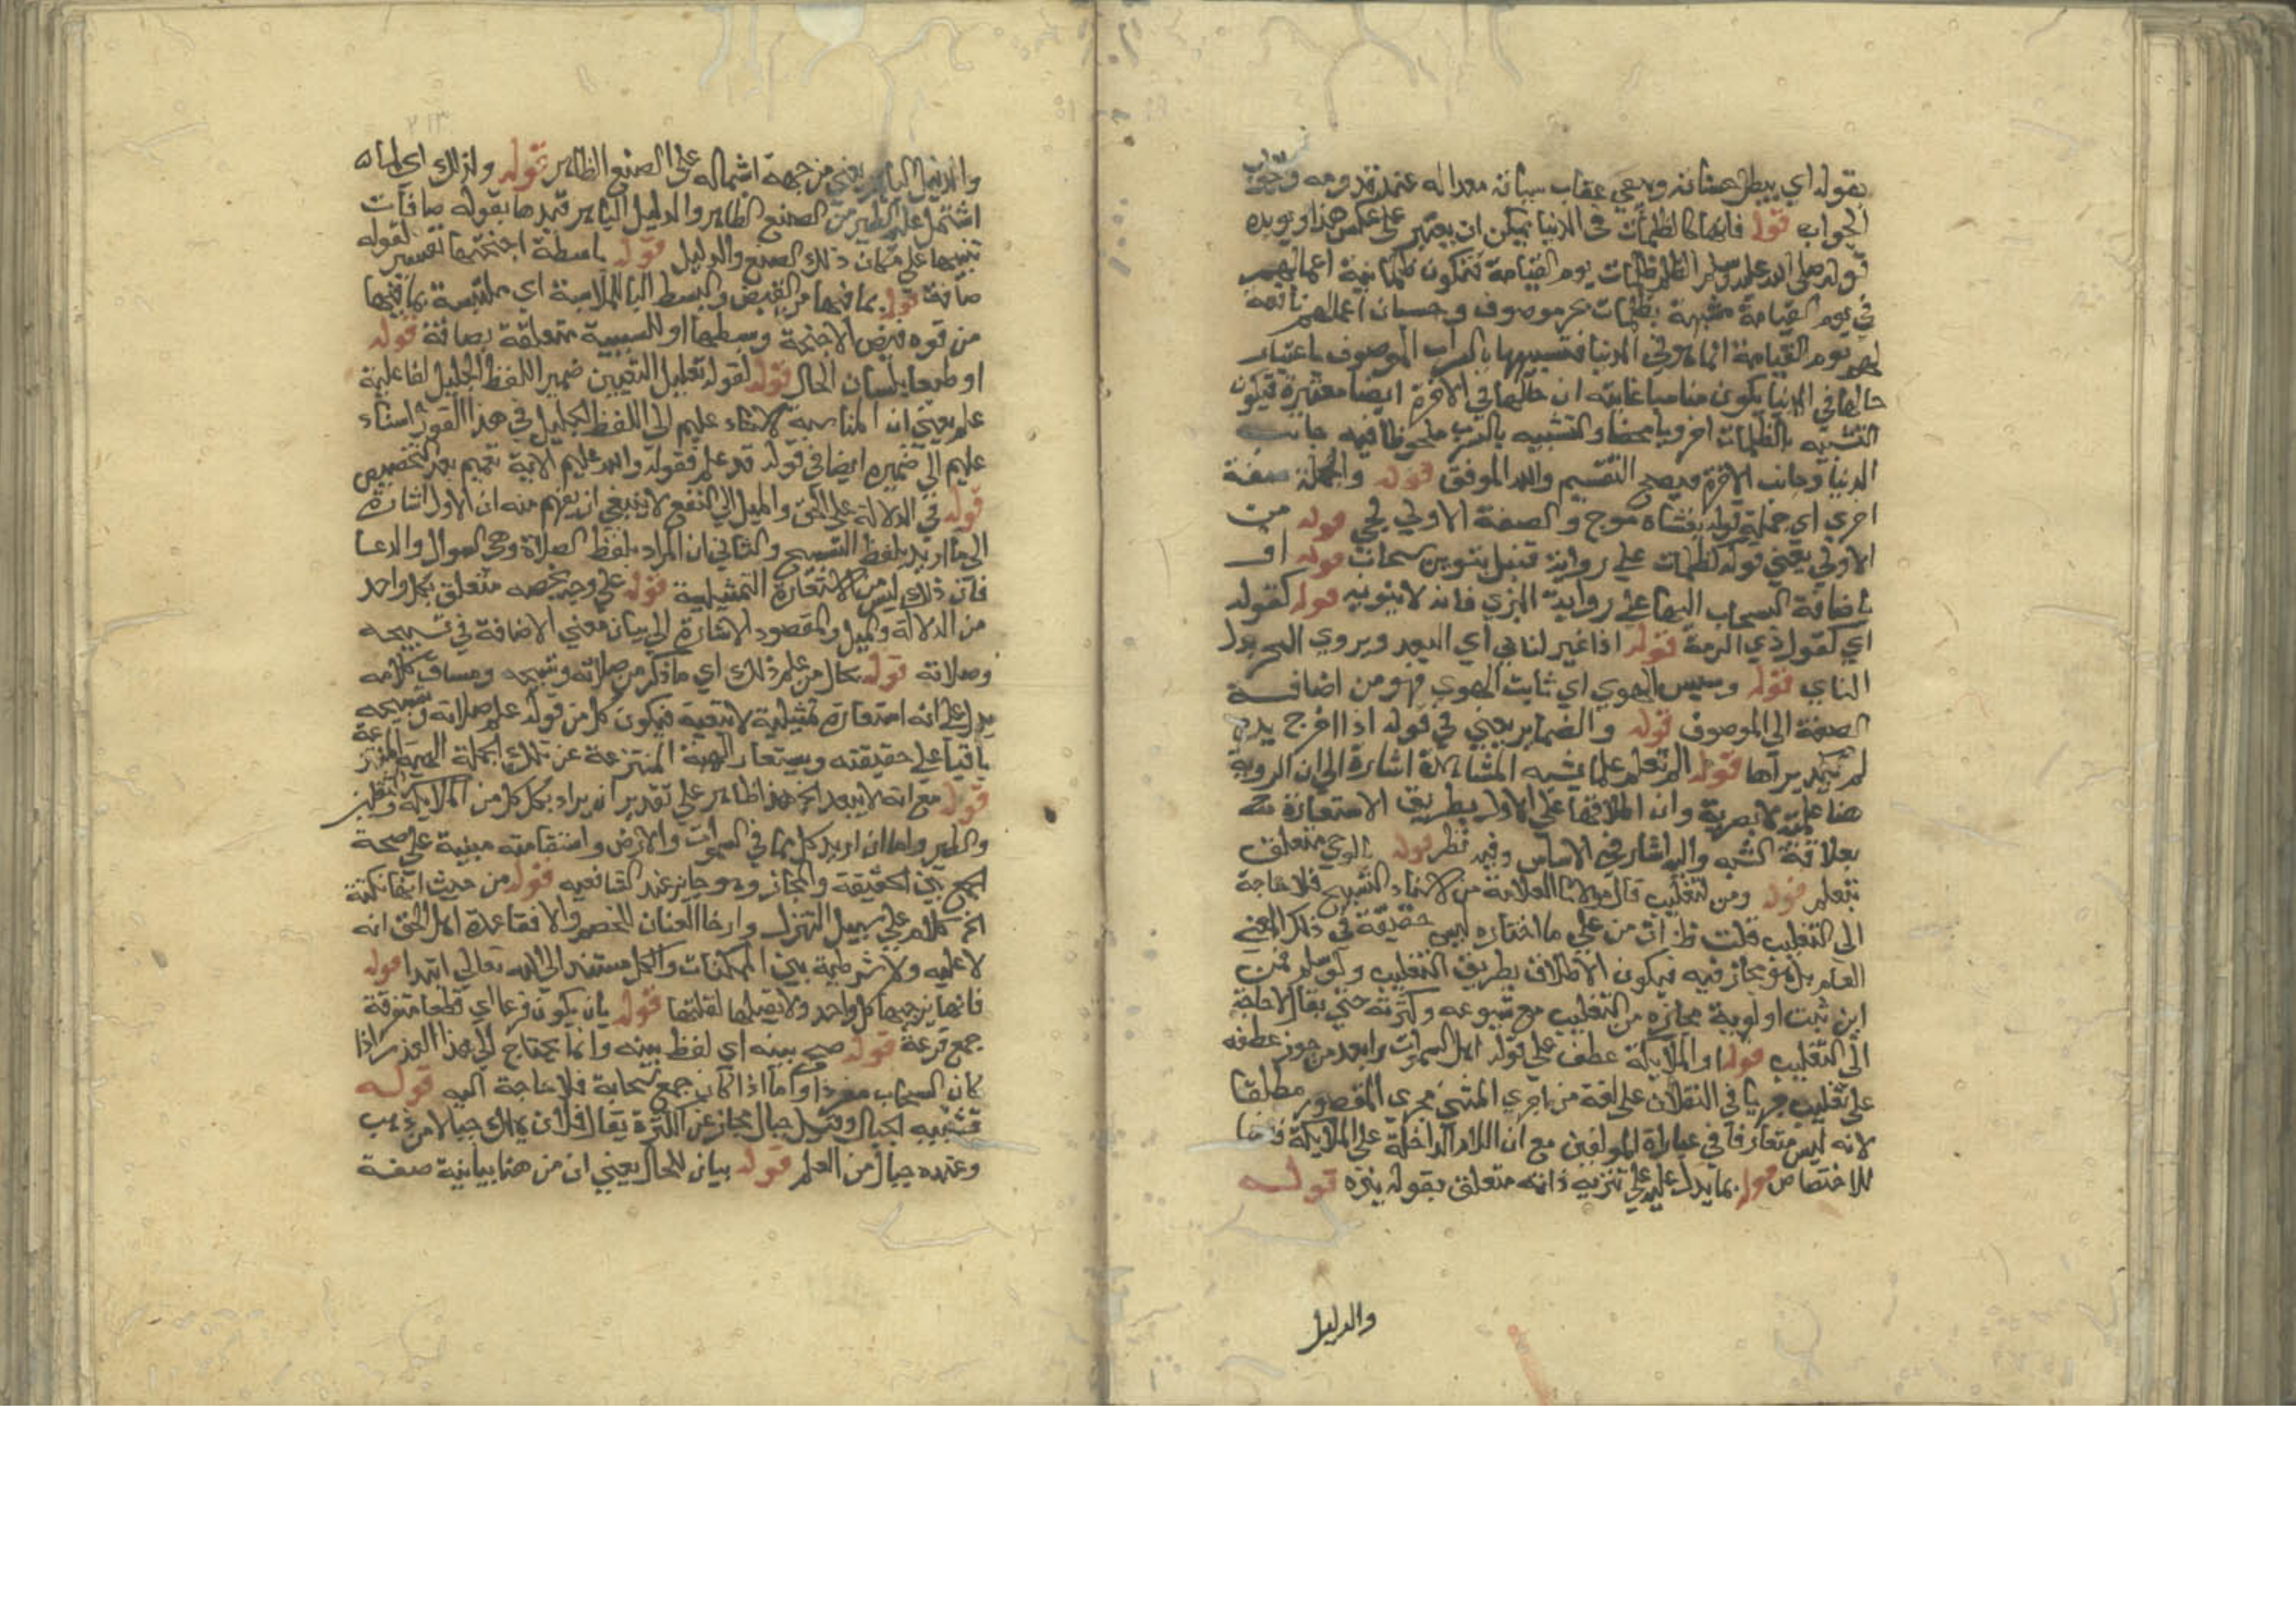 بقوله اي يبطل حسناته ويبقي عقاب سيئاته معدا له عند قدومه وجواب
الجواب قوله فانها كالظلمات في الدنيا يمكن ان يعتبر علي عكس هذا ويويده
قوله صلي الله عليه وسلم الظلم ظلمات يوم القيامة فتكون ظلمانية اعمالهم
في يوم القيامة مشبهة بظلمات بحر موصوف وحسبان اعمالهم نافعة
لهم يوم القيامة انما هو في الدنيا فتشبيهها بالسراب الموصوف باعتبار
حالها في الدنيا يكون مناسبا غايته ان حالها في الاخرة ايضا معتبرة فيكون
التشبيه بالظلمات اخرويا محضا والتشبيه بالسراب ملحوظا فيه جانب
الدنيا وجانب الاخرة فيصح التقسيم والله الموفق قوله والجملة صفة
اخري اي جملة قوله يغشاه موج والصفة الاولي لجي قوله من
الاولي يعني قوله لظلمات علي رواية قنبل بتنوين سحاب قوله او
باضافة السحاب اليها علي رواية البزي فانه لا ينونه قوله كقوله
اي كقول ذي الرمة قوله اذا غير الناي اي البعد ويروي الهجر بدل
الناي قوله رسيس الهوي اي ثابت الهوي فهو من اضافة
الصفة الي الموصوف قوله والضماير يعني في قوله اذا اخرج يده
لم يكد يراها قوله الم تعلم علما يشبه المشاهدة اشارة الي ان الروية
هنا علمية لا بصرية وان اطلاقها علي الاول بطريق الاستعارة
بعلاقة الشبه واليه اشار في الاساس وفيه نظر قوله بالوحي متعلق
بتعلم قوله ومن لتغليب قال مولانا العلامة من لاسناد التسبيح فلا حاجة
الي التغليب قلت ظ ان من علي ما اختاره ليس حقيقة في ذلك المعني
العام بل هو مجاز فيه فيكون الاطلاق بطريق التغليب ولو سلم فمن
اين ثبت اولوية مجازه من التغليب مع شيوعه وكثرته حتي يقال لا حاجة
الي التغليب قوله او الملايكة عطف علي قوله اهل السموات وابعد من جوز عطفه
علي تغليب جريا في الثقلان علي لغة من اجري المثني مجري المقصور مطلقا
لانه ليس متعارفا في عبارة المولفين مع ان اللام الداخلة علي الملايكة
للاختصاص قوله بما يدل عليه علي تنزيه ذاته متعلق بقوله ينزه قوله
والدليل
٢١٣
والدليل الباهر يعني من جهة اشتماله علي الصنع الظاهر قوله ولذلك اي لما
اشتمل عليه الطير من الصنع الظاهر والدليل الباهر قيدها بقوله صافات
تنبيها علي مكان ذلك الصنع والدليل قوله باسطة اجنحتها تفسير لقوله
صافة قوله بما فيها من القبض والبسط البا للملابسة اي ملتبسة بما فيها
من قوه قبض الاجنحة وبسطها او للسببية متعلقة بصافة قوله
او طبعا بلسان الحال قوله لقوله تعليل لتعيين ضمير اللفظ الجليل لفاعلية
علم يعني ان المناسبة لاسناد عليم الي اللفظ الجليل في هذا القول اسناد
عليم الي ضميره ايضا في قوله قد علم فقوله والله عليم الاية تعميم بعد التخصيص
قوله في الدلالة علي الحق والميل الي النفع لا ينبغي ان يفهم منه ان الاول اشارة
الي ما اريد بلفظ التسبيح والثاني ان المراد بلفظ الصلاة وهي السوال والدعا
فان ذلك ليس من الاستعارة التمثيلية قوله علي وجه يخصه متعلق بكل واحد
من الدلالة والميل والمقصود الاشارة الي بيان معني الاضافة في تسبيحه
وصلاته قوله بحال من علم ذلك اي ما ذكر من صلاته وتسبيحه ومساق كلامه
يدل علي انه استعارة تمثيلية لا تبعية فيكون كل من قوله علم صلاته وتسبيحه
باقيا علي حقيقته ويستعار الهيئة المنتزعة عن تلك الجملة الهيئة المنتزعة
قوله مع انه لا يبعد الخ هذا ظاهر علي تقدير ان يراد بكل كل من الملايكة والثقلين
والطير واما ان اريد كل ما في السموات والارض واستقامته مبنية علي صحة
الجمع بين الحقيقة والمجاز وهو جايز عند الشافعيه قوله من حيث انها ممكنة
الخ كلام علي سبيل التنزل وارخا العنان للخصم والا فقاعدة اهل الحق انه
لا علية ولا شرطية بين الممكنات والكل مستند الي الله تعالي ابتدا قوله
فانها يزجيها كل واحد ولا يقبلها لقلتها قوله بان يكون قزعا اي قطعا متفرقة
جمع قزعة قوله صح بينه اي لفظ بينه وانما يحتاج الي هذا العذر اذا
كان السحاب مفردا واما اذا كان جمع سحابة فلا حاجة اليه قوله
فتشبيه الجبال وقيل جبال مجاز عن الكثرة يقال فلان يملك جبالا من ذهب
وعنده جبال من العلم قوله بيان للجبال يعني ان من هنا بيانية صفة